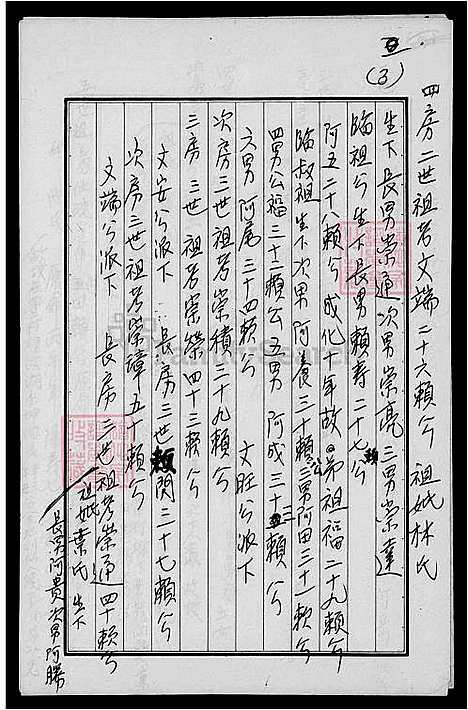 (3)
四房二世祖考文端二十六賴公 祖妣林氏
生下長男崇通次男崇亮三男崇達
臨祖公生下長男賴壽二十七賴公
阿五二十八賴公 成化十年故 弟祖福二十九賴公
臨叔祖生下次男阿養三十賴公三男阿田三十一賴公
四男公福三十二賴公五男阿成三十三賴公
六男阿尾三十四賴公 文旺公派下
次房三世祖考崇積三十九賴公
三房三世祖考崇榮四十三賴公
文安公派下 長房三世賴閃三十七賴公
次房三世祖考崇璋五十賴公
文端公派下 長房三世祖考崇通四十賴公
祖妣葉氏生下
長男阿貴次男阿勝